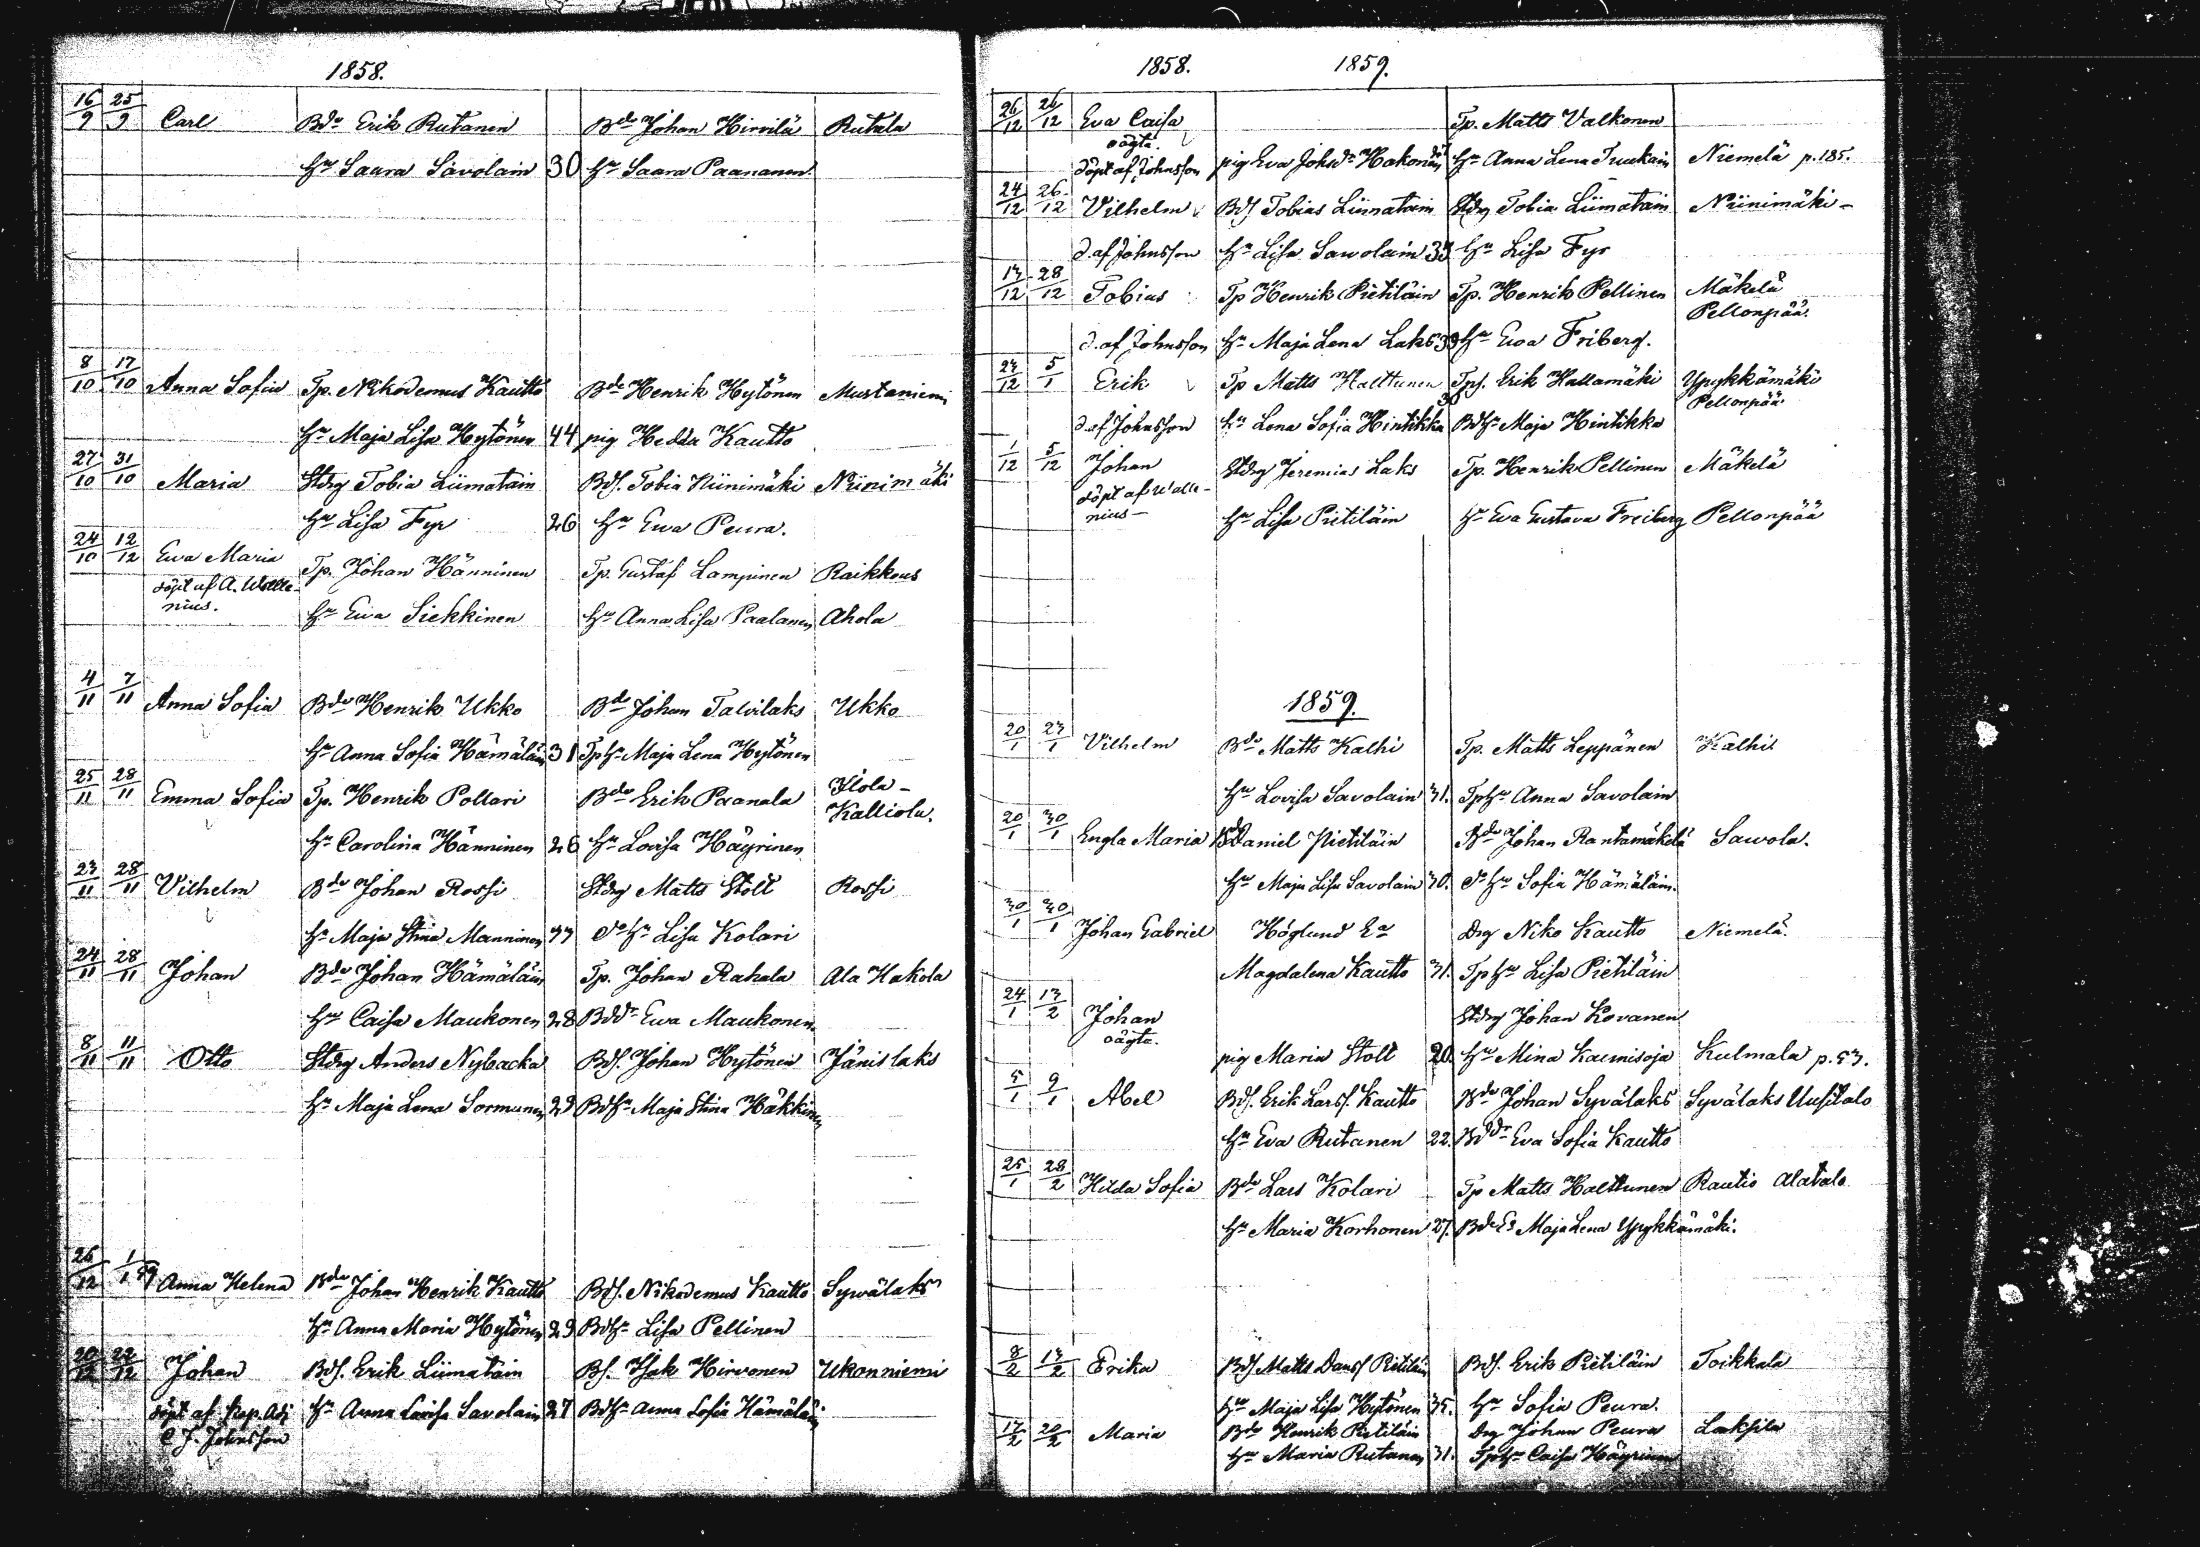 1858.
16/9 25/9 Carl Bdn Erik Rutanen Bdn Johan Hirvilä Rutala
Hu Saara Savolain 30 Hu Saara Paananen.
8/10 17/10 Anna Sofia Tp. Nikodemus Kautto Bdn Henrik Hytönen Mustaniemi
Hu Maja Lisa Hytönen 44 pig Hedda Kautto
27/10 31/10 Maria Stdrg Tobia Liimatain BdS. Tobia Niinimäki Niinimäki
Hu Lisa Fyr 26 Hu Ewa Peura.
24/10 12/12 Ewa Maria Tp. Johan Hänninen Tp. Gustaf Lampinen Raikkous
döpt af A. Walle-
nius. Hu Ewa Siekkinen Hu Anna Lisa Paalanen Ahola
4/11 7/11 Anna Sofia Bdn Henrik Ukko Bdn Johan Talvilaks Ukko
Hu Anna Sofia Hämäläin 31 TpHu Maja Lena Hytönen
25/11 28/11 Emma Sofia Tp. Henrik Pollari Bdn Erik Paanala Ilola-
Kalliola.
Hu Carolina Hänninen 26 Hu Lovisa Häyrinen
23/11 28/11 Vilhelm Bdn Johan Rossi Stdrg Matts Stolt Rossi
Hu Maja Stina Manninen 33 do Hu Lisa Kolari
24/11 28/11 Johan Bdn Johan Hämäläin Tp. Johan Rahala Ala Hakola
Hu Caisa Maukonen 28 Bddr Ewa Maukonen
8/11 11/11 Otto Stdrg Anders Nybacka BdS. Johan Hytönen Jänislaks
Hu Maja Lena Sormunen 29 BdHu Maja Stina Häkkinen
26/12 1/1 59 Anna Helena Bdn Johan Henrik Kautto BdS. Nikodemus Kautto Sywälaks
Hu Anna Maria Hytönen 29 BdHu Lisa Pellinen
20/12 22/12 Johan BdS. Erik Liimatain BS. Isak Hirvonen Ukonniemi
döpt af Kap. Adj Hu Anna Lovisa Savolain 27 BdHu Anna Sofia Hämäläin
C. J. Johnsson
1858. 1859.
26/12 26/12 Eva Caisa Tp. Matts Valkonen
oägta.
döpt af Johnsson pig Eva Johsdr Hakonen Hu Anna Lena Tuukain Niemelä p.185.
24/12 26/12 Vilhelm BdS Tobias Liimatain Stdrg Tobia Liimatain Niinimäki-
d. af Johnsson Hu Lisa Sawolain 33 Hu Lisa Fyr
13/12 28/12 Tobias Tp Henrik Pietiläin Tp. Henrik Pellinen Mäkelä
Pellonpää.
d. af Johnsson Hu Maja Lena Laks 39 Hu Ewa Friberg.
23/12 5/1 Erik Tp Matts Halttunen TpS. Erik Hallamäki Ypykkämäki
Pellonpää.
d. af Johnsson Hu Lena Sofia Hintikka BdHu Maja Hintikka
1/12 5/12 Johan Stdrg Jeremias Laks Tp. Henrik Pellinen Mäkelä
döpt af Walle-
nius- Hu Lisa Pietiläin Hu Eva Gustava Freiberg Pellonpää
1859.
20/1 23/1 Vilhelm Bdn Matts Kalhi Tp. Matts Leppänen Kalhi
Hu Lovisa Savolain 31. TpHu Anna Savolain
20/1 30/1 Engla Maria Bd Daniel Pietiläin Bdn Johan Rantamäkelä Sawola.
Hu Maja Lisa Savolain 30. do Hu Sofia Hämäläin.
30/1 30/1 Johan Gabriel Höglund Ea Drg Niko Kautto Niemelä.
Magdalena Kautto 31. TpHu Lisa Pietiläin
24/1 13/2 Johan Stdrg Johan Kovanen
oägta.
pig Maria Stolt 20. Hu Mina Kaemisoja Kulmala p.53.
5/1 9/1 Abel BdS. Erik LarsS. Kautto Bdn Johan Syvälaks Syvälaks Uusitalo
Hu Eva Rutanen 22. Bddr Eva Sofia Kautto
25/1 28/2 Hilda Sofia Bdn Lars Kolari Tp Matts Halttunen Rautio Alatalo
Hu Maria Korhonen 27. BdeEa Maja Lena Ypykkämäki.
8/2 13/2 Erika BdS Matts DansS Pietiläin BdS. Erik Pietiläin Toikkala
Hu Maja Lisa Hytönen 35. Hu Sofia Peura.
17/2 20/2 Maria Bdn Henrik Pietiläin Drg Johan Peura Laksila
Hu Maria Rutanen 31. TpHu Caisa Häyrinen